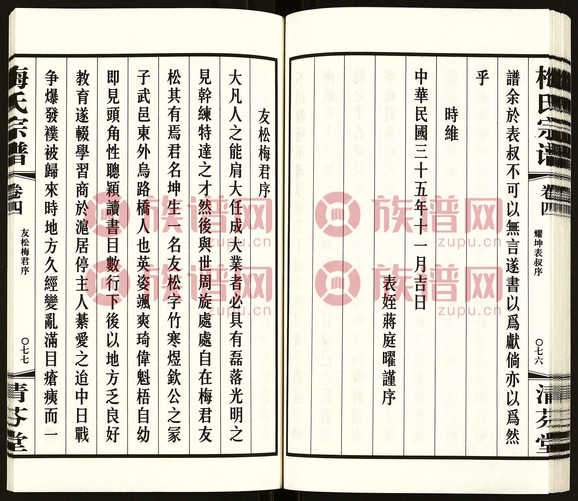 梅氏宗谱
卷四
耀坤表叔序
〇七六
清芬堂
譜余於表叔不可以無言遂書以爲獻倘亦以爲然
乎
時維
中華民國三十五年十一月吉日
表姪蔣庭曜謹序
友松梅君序
大凡人之能肩大任成大業者必具有磊落光明之
見幹練特達之才然後與世周旋處處自在梅君友
松其有焉君名坤生一名友松字竹寒煜欽公之冢
子武邑東外烏路橋人也英姿颯爽琦偉魁梧自幼
即見頭角性聰穎讀書目數行下後以地方乏良好
教育遂輟學習商於滬居停主人綦愛之迨中日戰
争爆發襆被歸來時地方久經變亂滿目瘡痍而一
梅氏宗譜
卷四
友松梅君序
〇七七
清芬堂
族谱网
zupu.cn
族谱网
zupu.cn
族谱网
zupu.cn
族谱网
zupu.cn